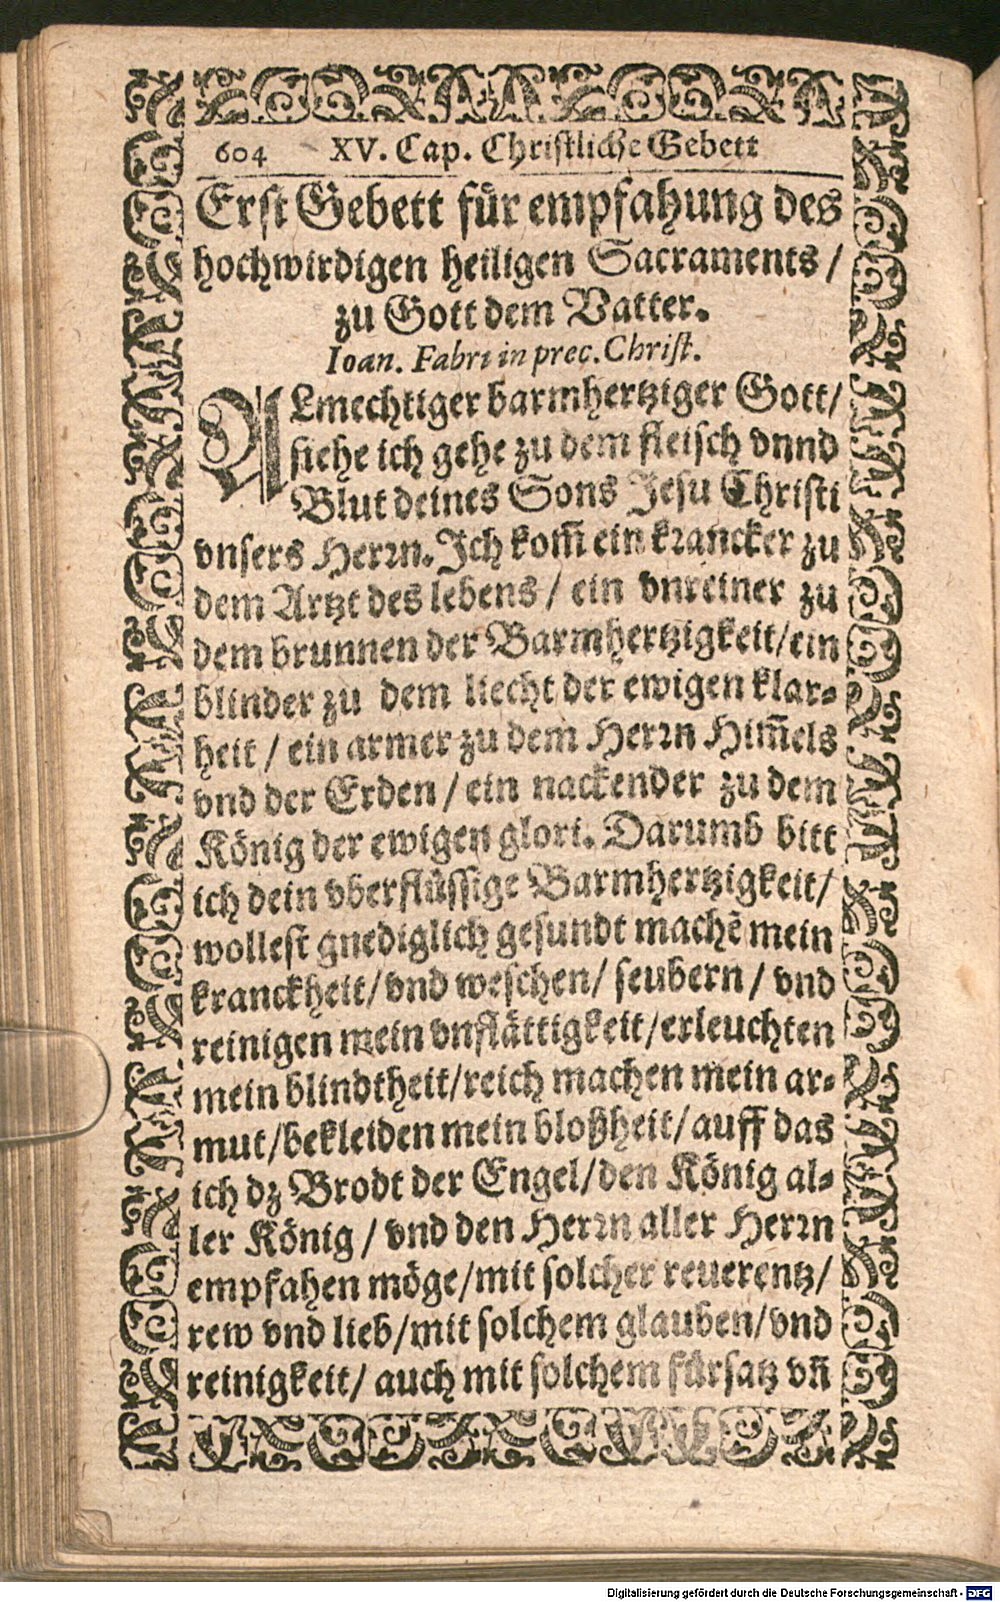 604 XV. Cap. Christliche Gebett
Erst Gebett für empfahung des
hochwirdigen heiligen Sacraments /
zu Gott dem Vatter.
Ioan. Fabri in prec. Christ.
ALmechtiger barmhertziger Gott/
siehe ich gehe zu dem fleisch vnnd
Blut deines Sons Jesu Christi
vnsers Herrn. Ich kom̃ ein krancker zu
dem Artzt des lebens / ein vnreiner zu
dem brunnen der Barmhertzigkeit/ein
blinder zu dem liecht der ewigen klar-
heit / ein armer zu dem Herrn Him̃els
vnd der Erden / ein nackender zu dem
König der ewigen glori. Darumb bitt
ich dein vberflüssige Barmhertzigkeit/
wollest gnediglich gesundt machẽ mein
kranckheit/vnd weschen/ seubern / vnd
reinigen mein vnflättigkeit/erleuchten
mein blindtheit/reich machen mein ar-
mut/bekleiden mein bloßheit/auff das
ich dz Brodt der Engel/den König al-
ler König / vnd den Herrn aller Herrn
empfahen möge/mit solcher reuerentz/
rew vnd lieb/mit solchem glauben/vnd
reinigkeit/ auch mit solchem fürsatz vñ
Digitalisierung gefördert durch die Deutsche Forschungsgemeinschaft - DFG